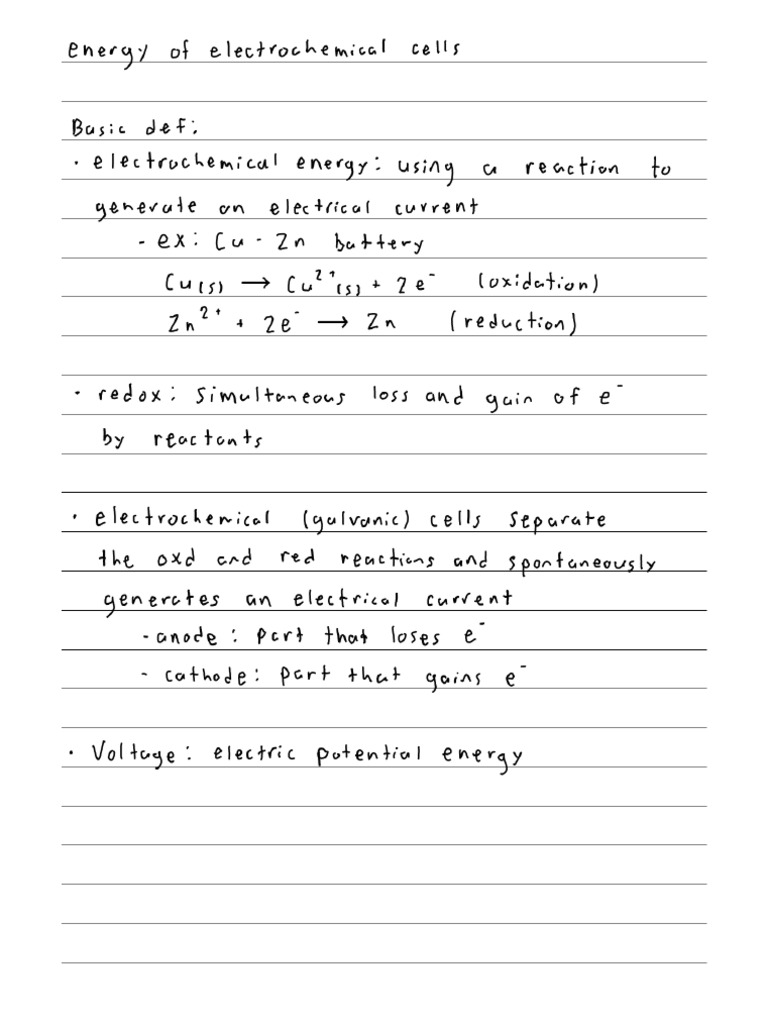 energy of electrochemical cells
Basic def:
· electrochemical energy: using a reaction to
generate an electrical current
- ex: Cu - Zn battery
Cu(s) → Cu²⁺(s) + 2e⁻ (oxidation)
Zn²⁺ + 2e⁻ → Zn (reduction)
· redox: simultaneous loss and gain of e⁻
by reactants
· electrochemical (galvanic) cells separate
the oxd and red reactions and spontaneously
generates an electrical current
- anode: part that loses e⁻
- cathode: part that gains e⁻
· Voltage: electric potential energy